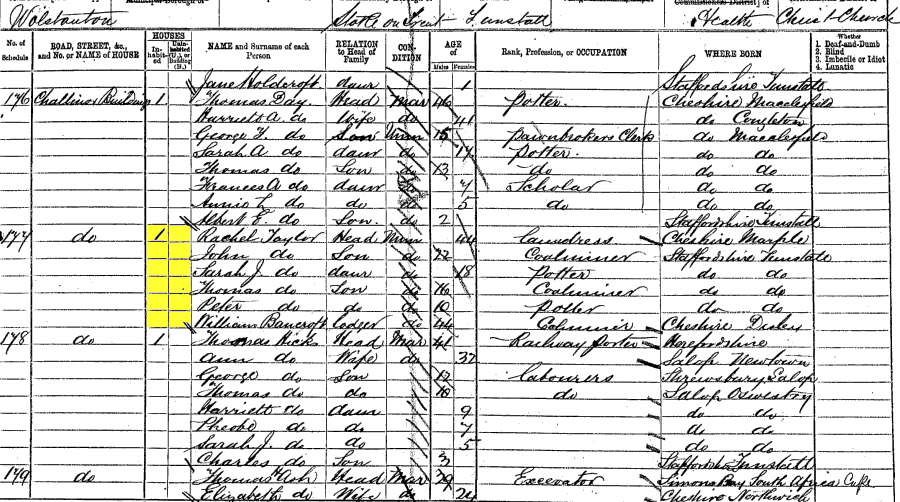 Wolstanton Stoke on Trent Tunstall Christ Church
No. of Schedule ROAD, STREET, &c., and No. or NAME of HOUSE HOUSES In-habit-ed Unin-habited (U.), or Building (B.) NAME and Surname of each Person RELATION to Head of Family CON-DITION AGE of Males Females Rank, Profession, or OCCUPATION WHERE BORN Whether 1. Deaf-and-Dumb 2. Blind 3. Imbecile or Idiot 4. Lunatic
Jane Holdcroft daur 1 Staffordshire Tunstall
176 Challinor Buildings 1 Thomas Day Head Mar 46 Potter Cheshire Macclesfield
Harriett A. do Wife do 41 do Congleton
George F. do Son Unm 15 Pawnbrokers Clerk do Macclesfield
Sarah A do daur do 17 Potter do do
Thomas do Son do 13 do do do
Frances A do daur 7 Scholar do do
Annie L do do 5 do do do
Albert E. do Son do 2 Staffordshire Tunstall
177 do 1 Rachel Taylor Head Unm 44 Laundress Cheshire Marple
John do Son do 22 Coalminer Staffordshire Tunstall
Sarah J. do daur do 18 Potter do do
Thomas do Son do 16 Coalminer do do
Peter do do do 10 Potter do do
William Bancroft Lodger do 44 Coalminer Cheshire Disley
178 do 1 Thomas Hicks Head Mar 41 Railway porter Herefordshire
Ann do Wife do 37 Salop Newtown
George do Son 12 Labourers Shrewsbury Salop
Thomas do do 10 do Salop Oswestry
Harriett do daur 9 do do
Pheobe do do 7 do do
Sarah J. do do 5 do do
Charles do Son 3 Staffordshire Tunstall
179 do Thomas Ash Head Mar 39 Excavator Simons Bay South Africa Cape
Elizabeth do Wife do 24 Cheshire Northwich